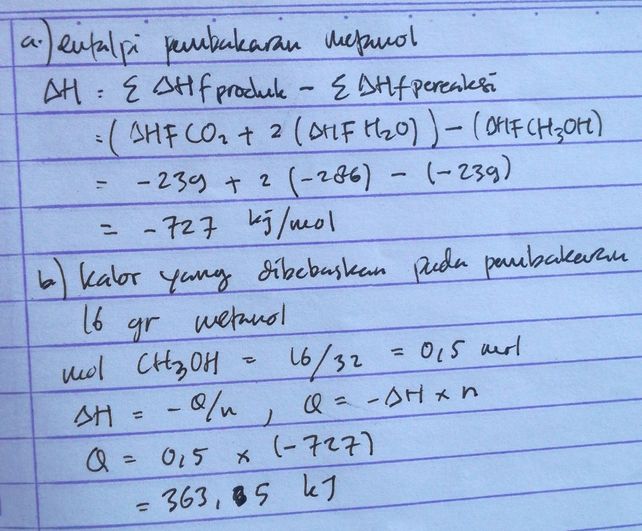 a.) entalpi pembakaran metanol
ΔH = Σ ΔHf produk - Σ ΔHf pereaksi
= (ΔHF CO2 + 2 (ΔHF H2O)) - (ΔHF CH3OH)
= -239 + 2 (-286) - (-239)
= -727 kj/mol
b) kalor yang dibebaskan pada pembakaran
16 gr metanol
mol CH3OH = 16/32 = 0,5 mol
ΔH = -Q/n , Q = -ΔH x n
Q = 0,5 x (-727)
= 363,5 kJ